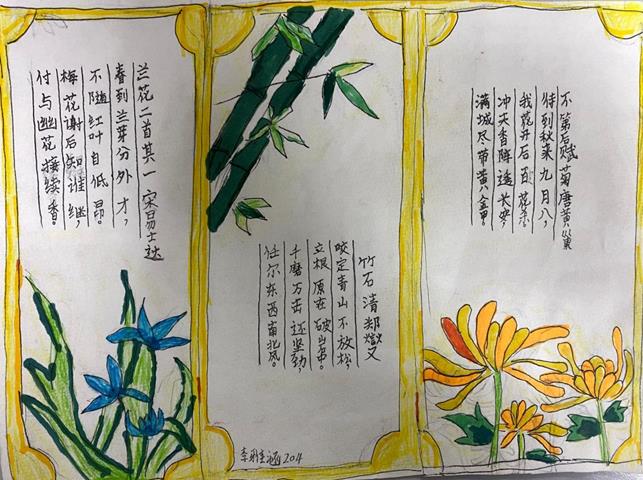 不第后赋菊唐黄巢
待到秋来九月八,
我花开后百花杀
冲天香阵透长安,
满城尽带黄金甲。
竹石 清郑燮
咬定青山不放松,
立根原在破岩中。
千磨万击还坚劲
任尔东西南北风。
兰花二首其一 宋易士达
春到兰芽分外才,
不随红叶自低昂。
梅花谢后知谁继,
付与幽花接续香。
李 204